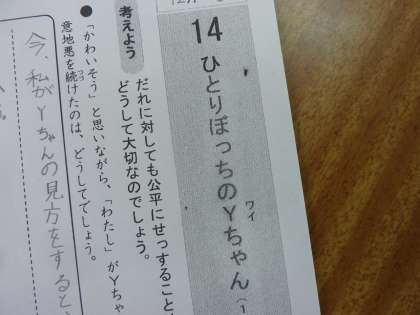 14 ひとりぼっちのYちゃん
ワイ
考えよう
だれに対しても公平にせっすること
どうして大切なのでしょう。
●「かわいそう」と思いながら、「わたし」がYちゃ
意地悪を続けたのは、どうしてでしょう。
つづ
今、私がYちゃんの見方をすると、